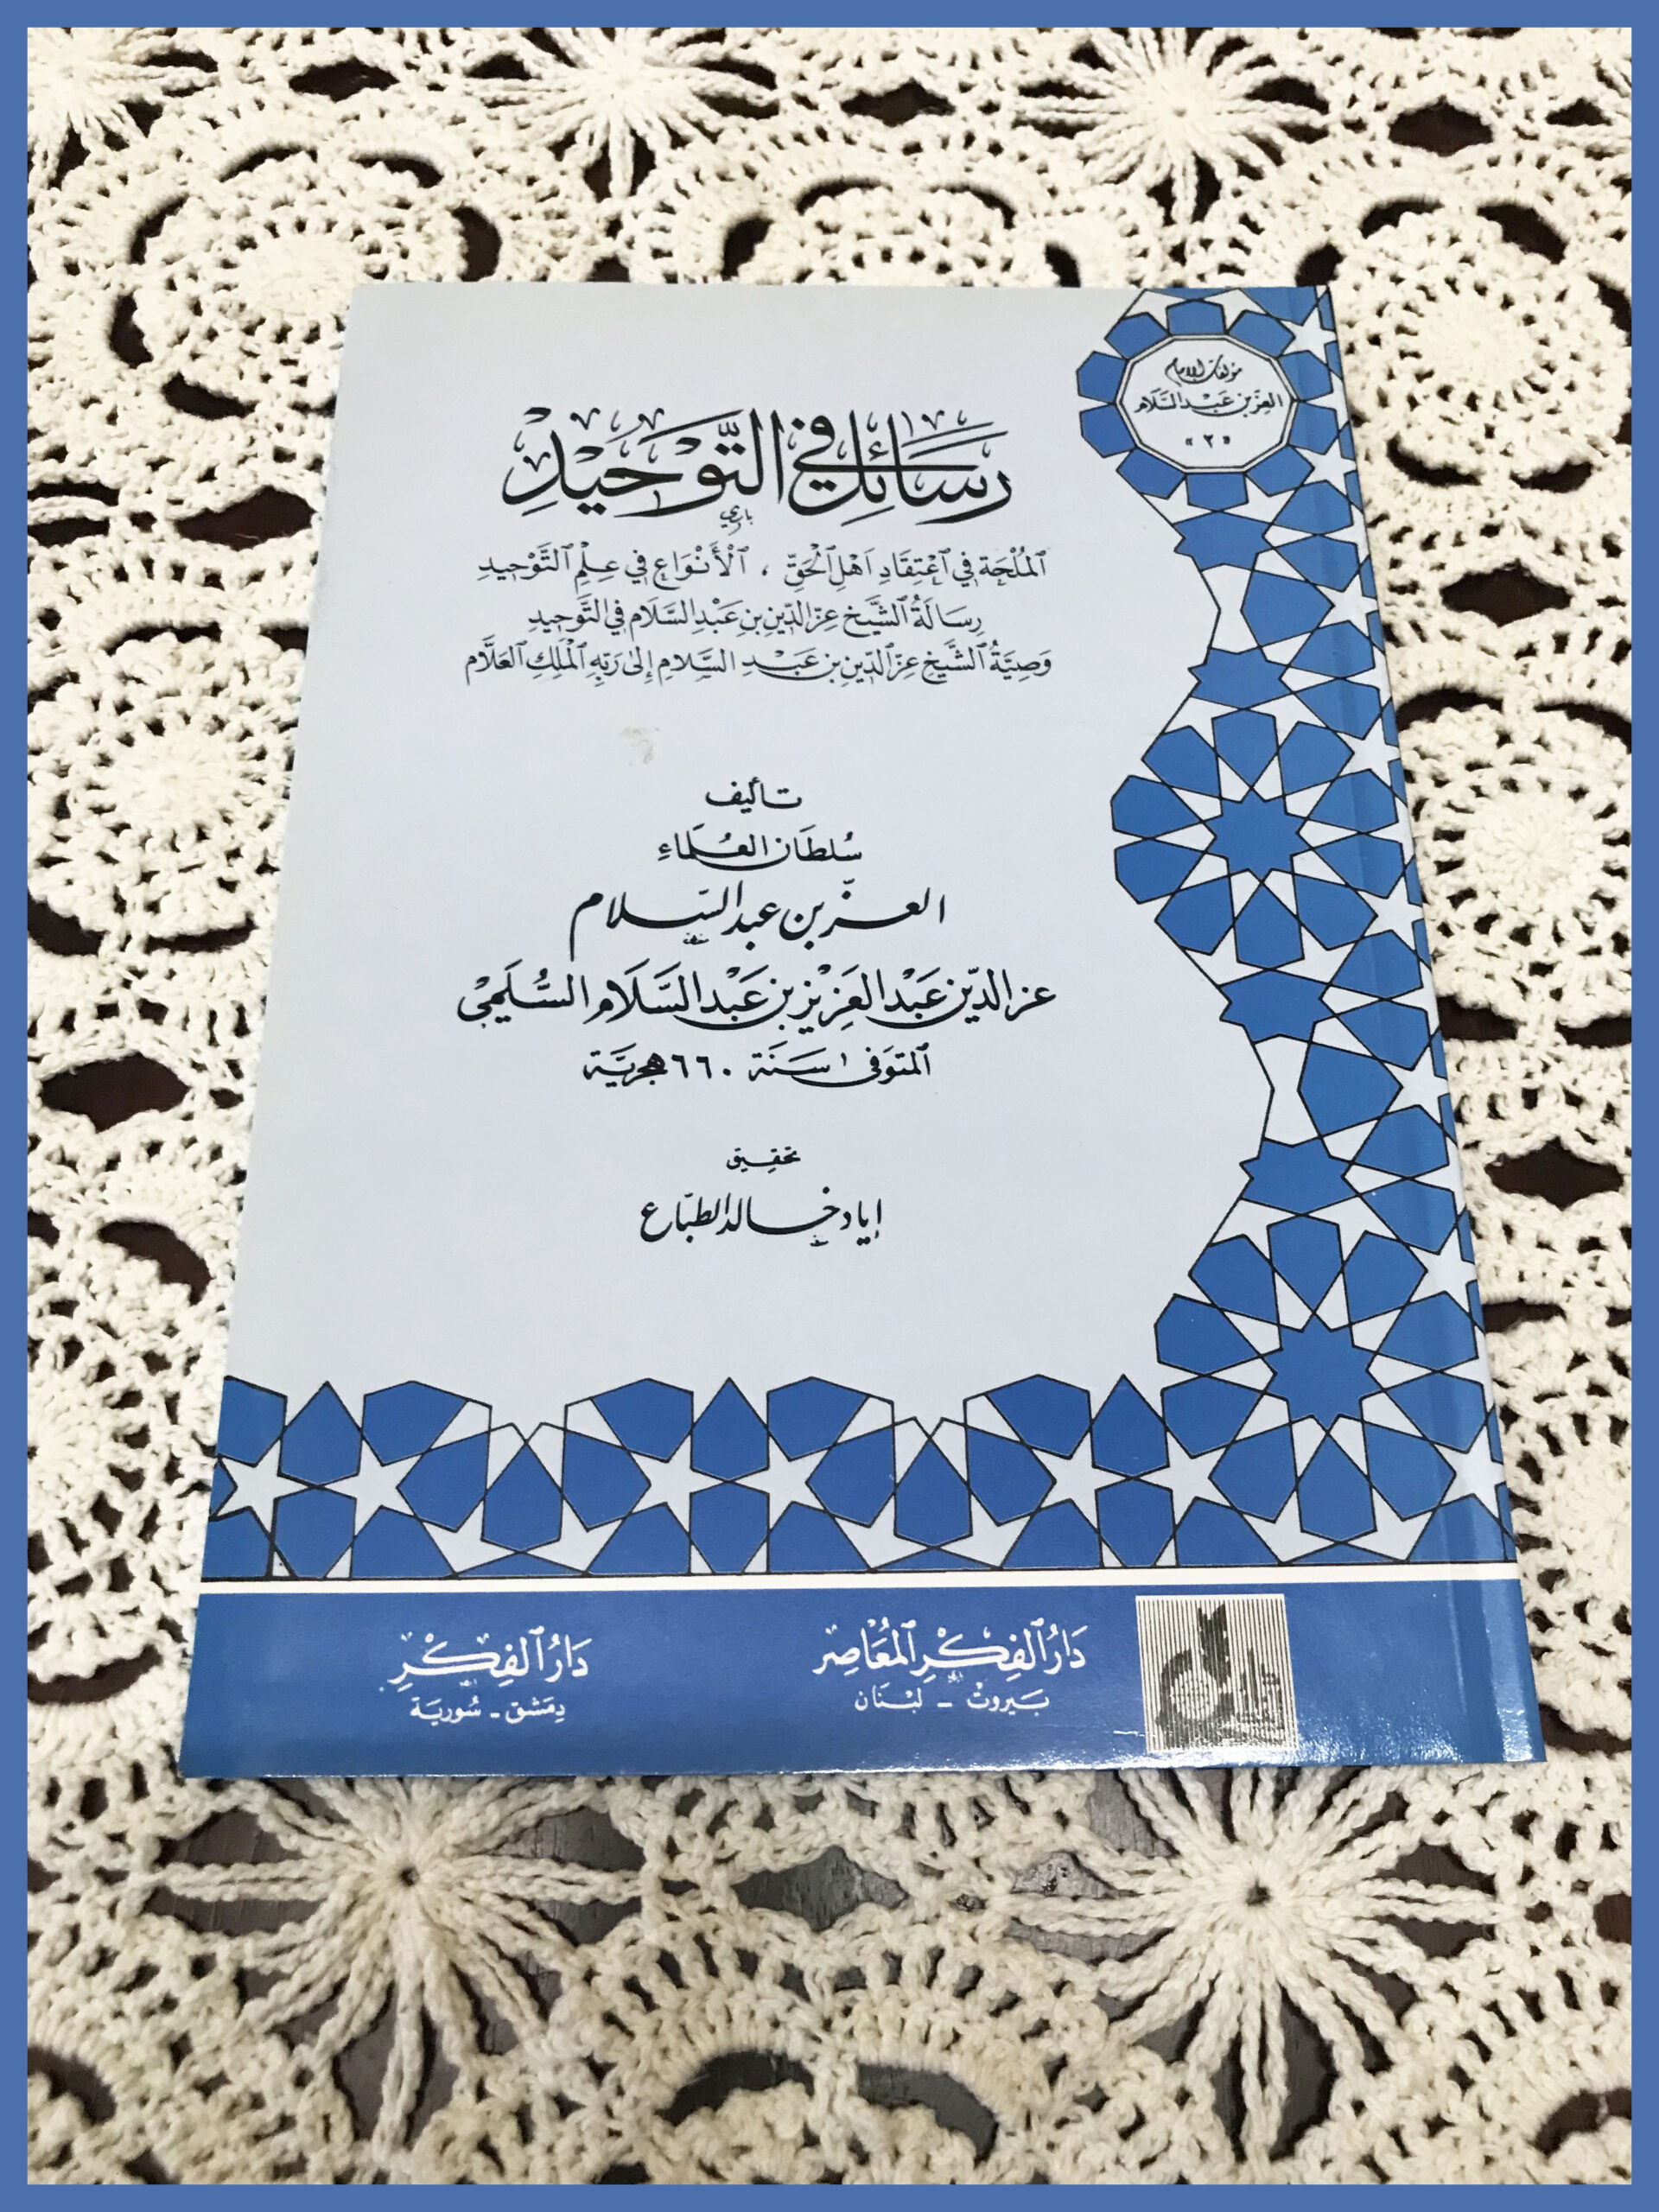 مؤلفات الإمام
العِزّ بن عَبْد السَّلَام
«٢»
رسَائِل في التَّوحَيْدِ
باري
ٱلمُلْحَة في ٱعْتِقَادِ اَهْلِ ٱلْحَقِّ ، ٱلْأَنْوَاع في عِلْمِ ٱلتَّوْحِيدِ
رِسَالَةُ ٱلشَّيْخ عِزّ الدِّينِ بنِ عَبْدِ السَّلَام في التَّوحِيدِ
وَصِيَّةُ ٱلشَّيْخِ عِزّ ٱلدِّينِ بنِ عَبْدِ السَّلامِ إِلىٰ رَبِّهِ ٱلْمَلِكِ ٱلعَلَّام
تأليف
سُلطَان العُلَمَاءِ
العزّ بن عبد السّلام
عز الدّين عَبْد العَزِيْز بن عَبْد السَّلَام السُّلَمِيْ
ٱلمتوَفى سَنَة ٦٦٠ هجريَّة
تحقِيق
إياد خالد الطبّاع
دَارُ ٱلفِكْرِ ٱلمُعَاصِر
بَيروتْ - لبْنَان
دَارُ ٱلفِكْرِ
دِمَشق - سُوريَة